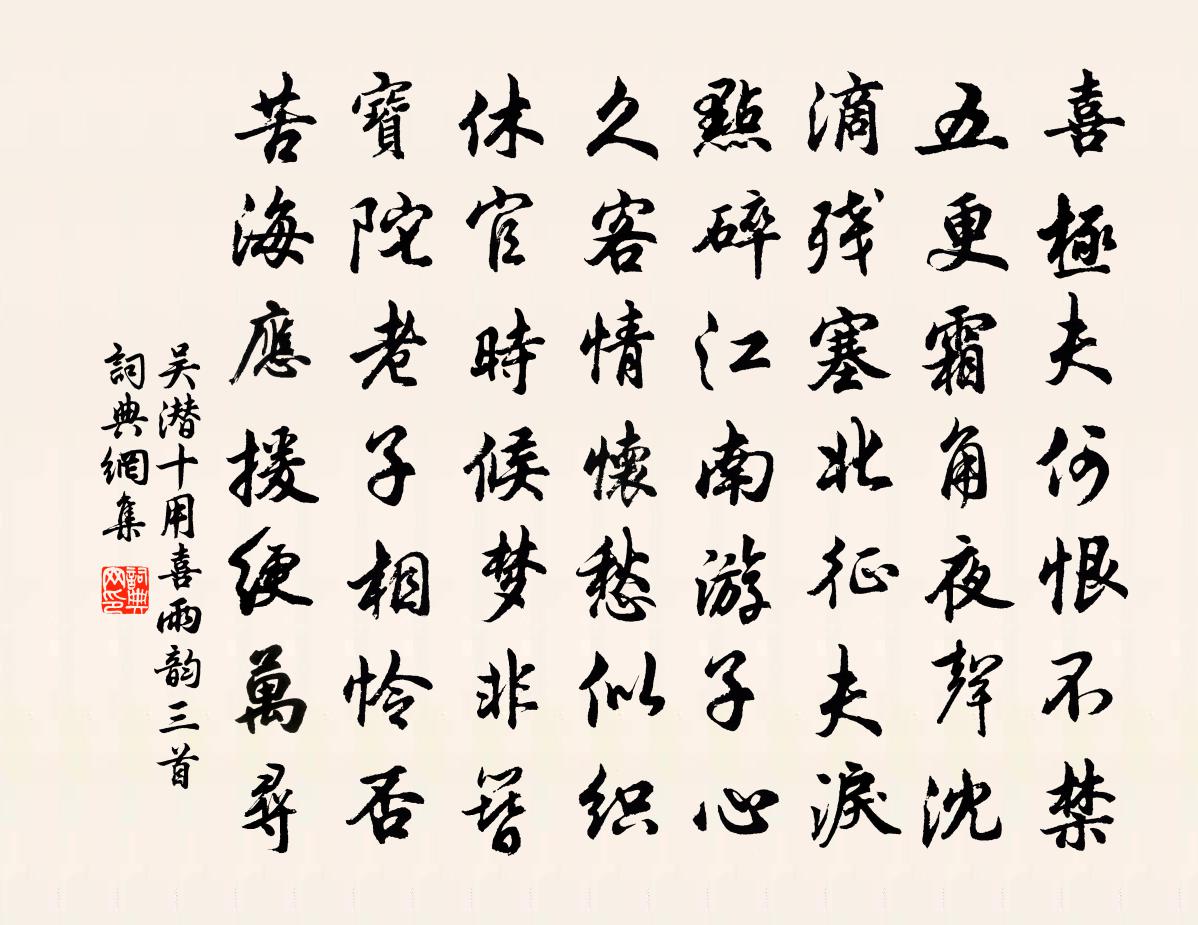 喜極夫何恨不禁
五更霜角夜聲沈
滴殘塞北征夫淚
點碎江南游子心
久客情懷愁似织
休官時候梦非簪
寶陀老子相怜否
苦海應援綆萬尋
吴潜十用喜雨韵三首
詞典網集
詞典网印